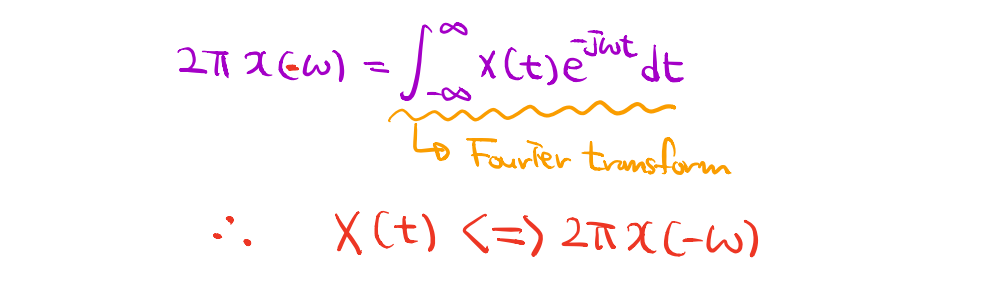 2π x(-ω) = ∫_{-∞}^{∞} X(t) e^{-jωt} dt
↳ Fourier transform
∴ X(t) <=> 2π x(-ω)